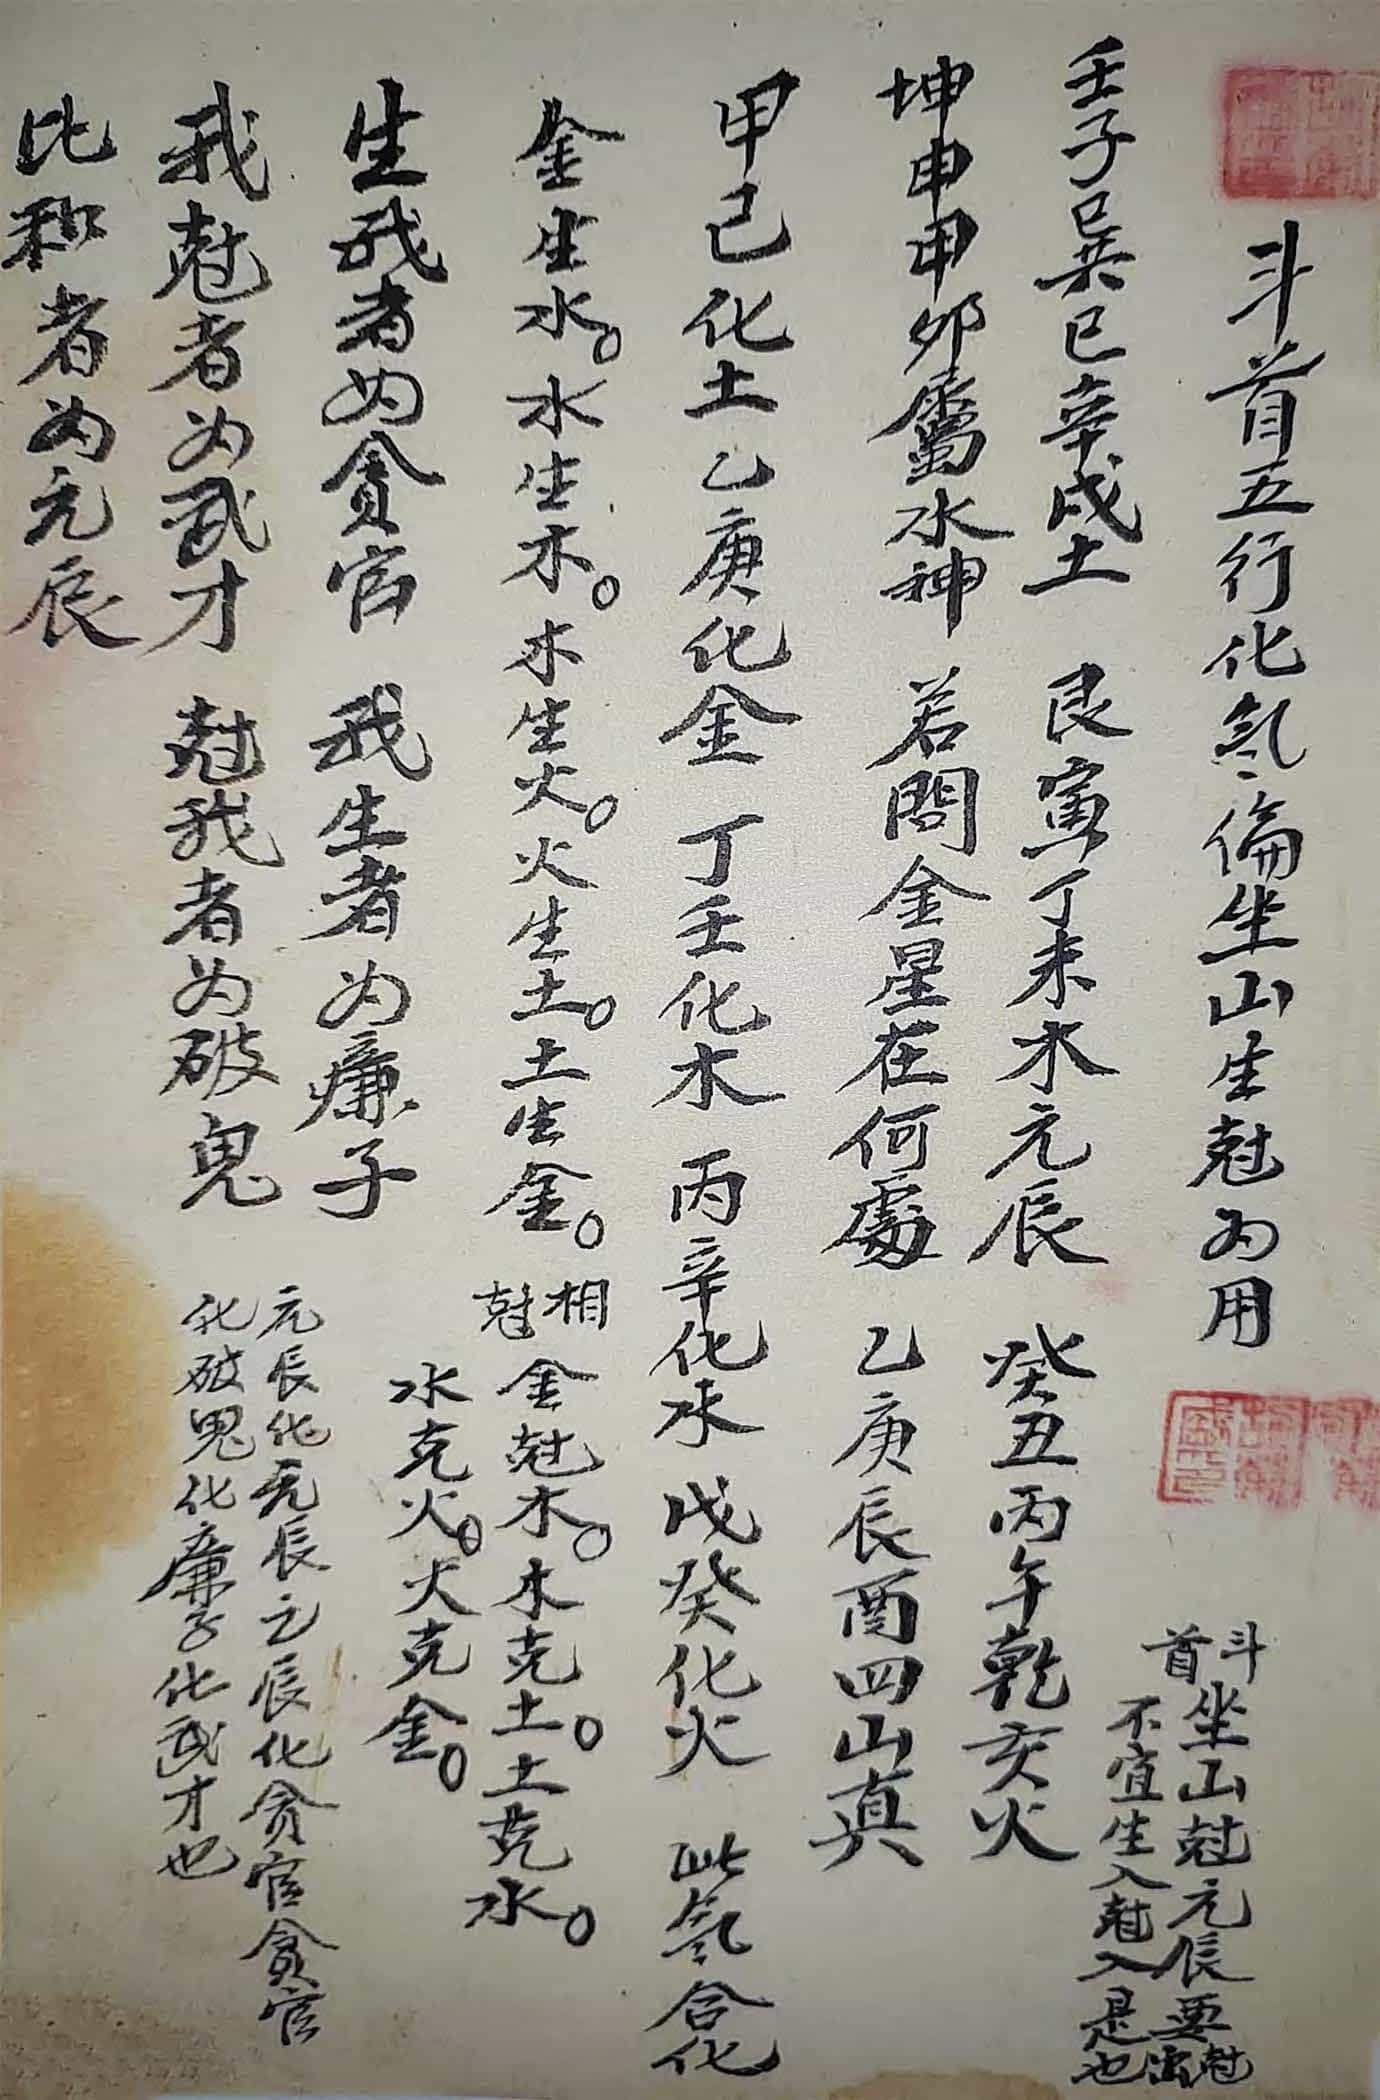 斗首五行化氣倫坐山生尅为用
斗首
坐山尅元辰要尅出
不宜生入尅入是也
壬子巽巳辛戌土 艮寅丁未木元辰 癸丑丙午乾亥火
坤申甲卯屬水神 若問金星在何處 乙庚辰酉四山真
甲己化土乙庚化金 丁壬化木 丙辛化水 戊癸化火 此氣合化
金生水。水生木。木生火。火生土。土生金。
相尅
金尅木。木克土。土克水。
水克火。火克金。
生我者为貪官 我生者为廉子
我尅者为武才 尅我者为破鬼
元辰化元辰之辰化貪官貪官
化破鬼化廉子化武才也
比和者为元辰